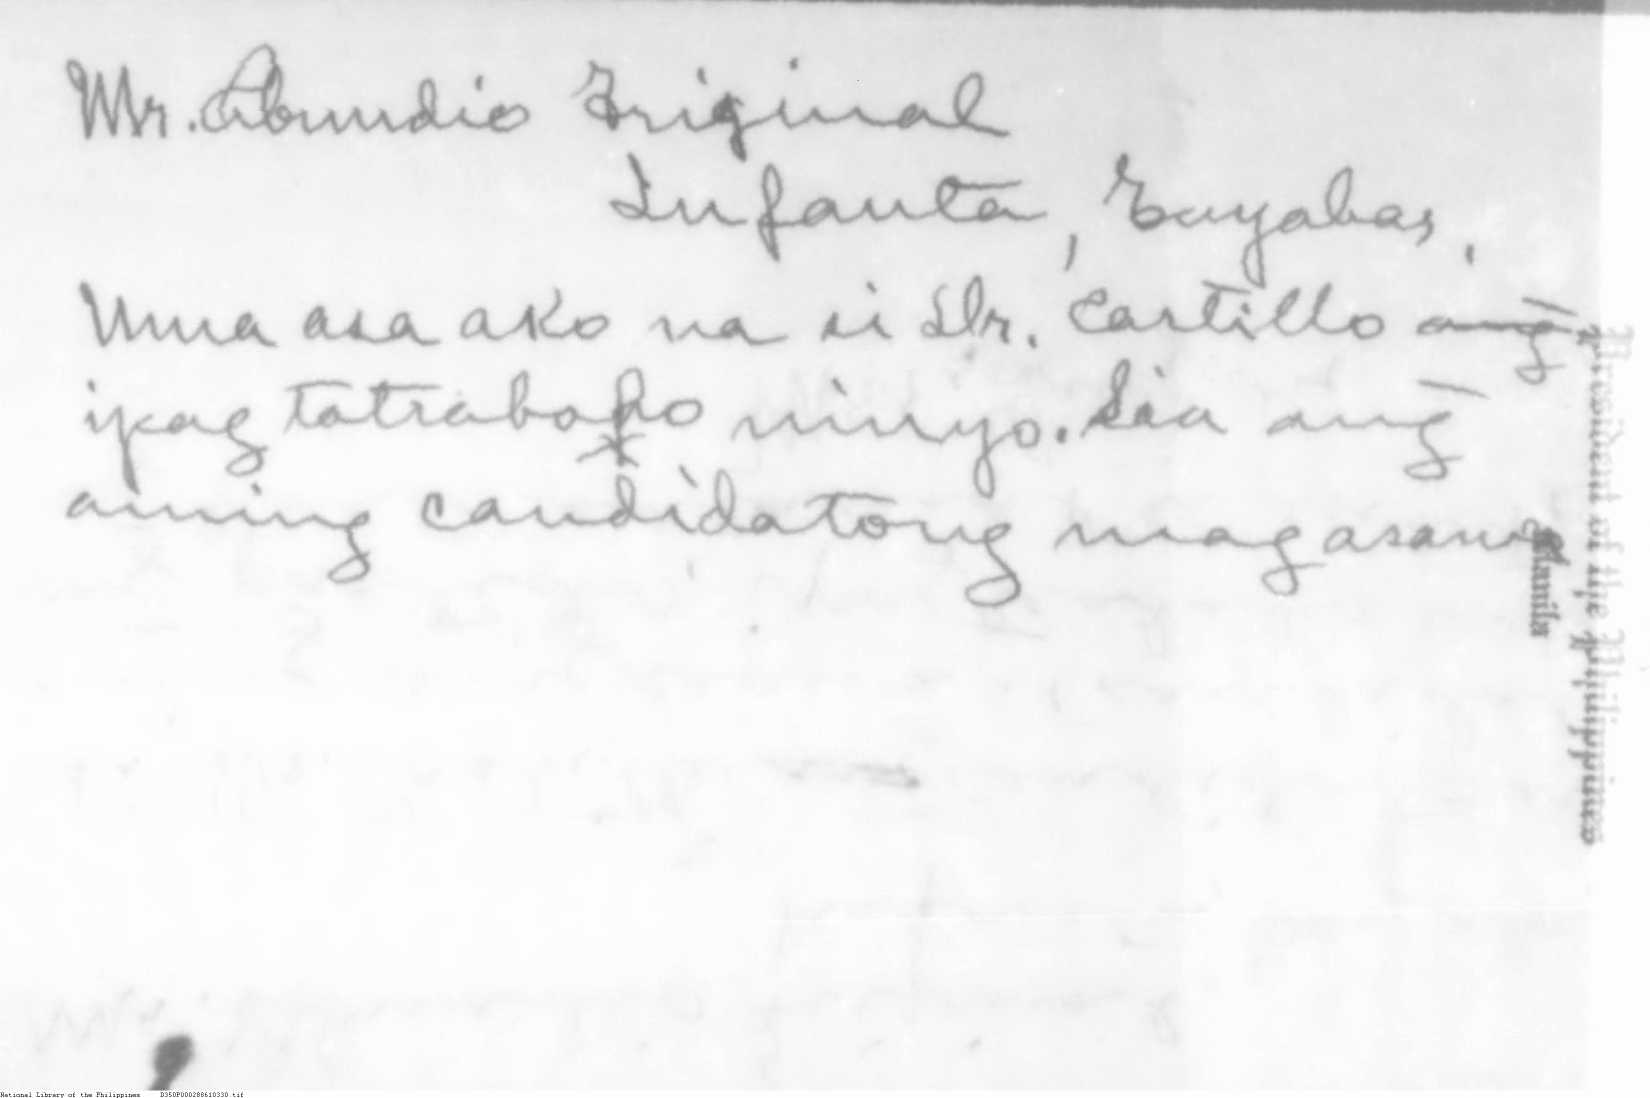 Mr. Abundio Original
Infanta, Tayabas.
Uma asa ako na si Dr. Castillo ang
ipag tatrabajo ninyo. Sia ang
aming candidatong magasawa
President of the Philippines
Manila
National Library of the Philippines D350P000288610330.tif